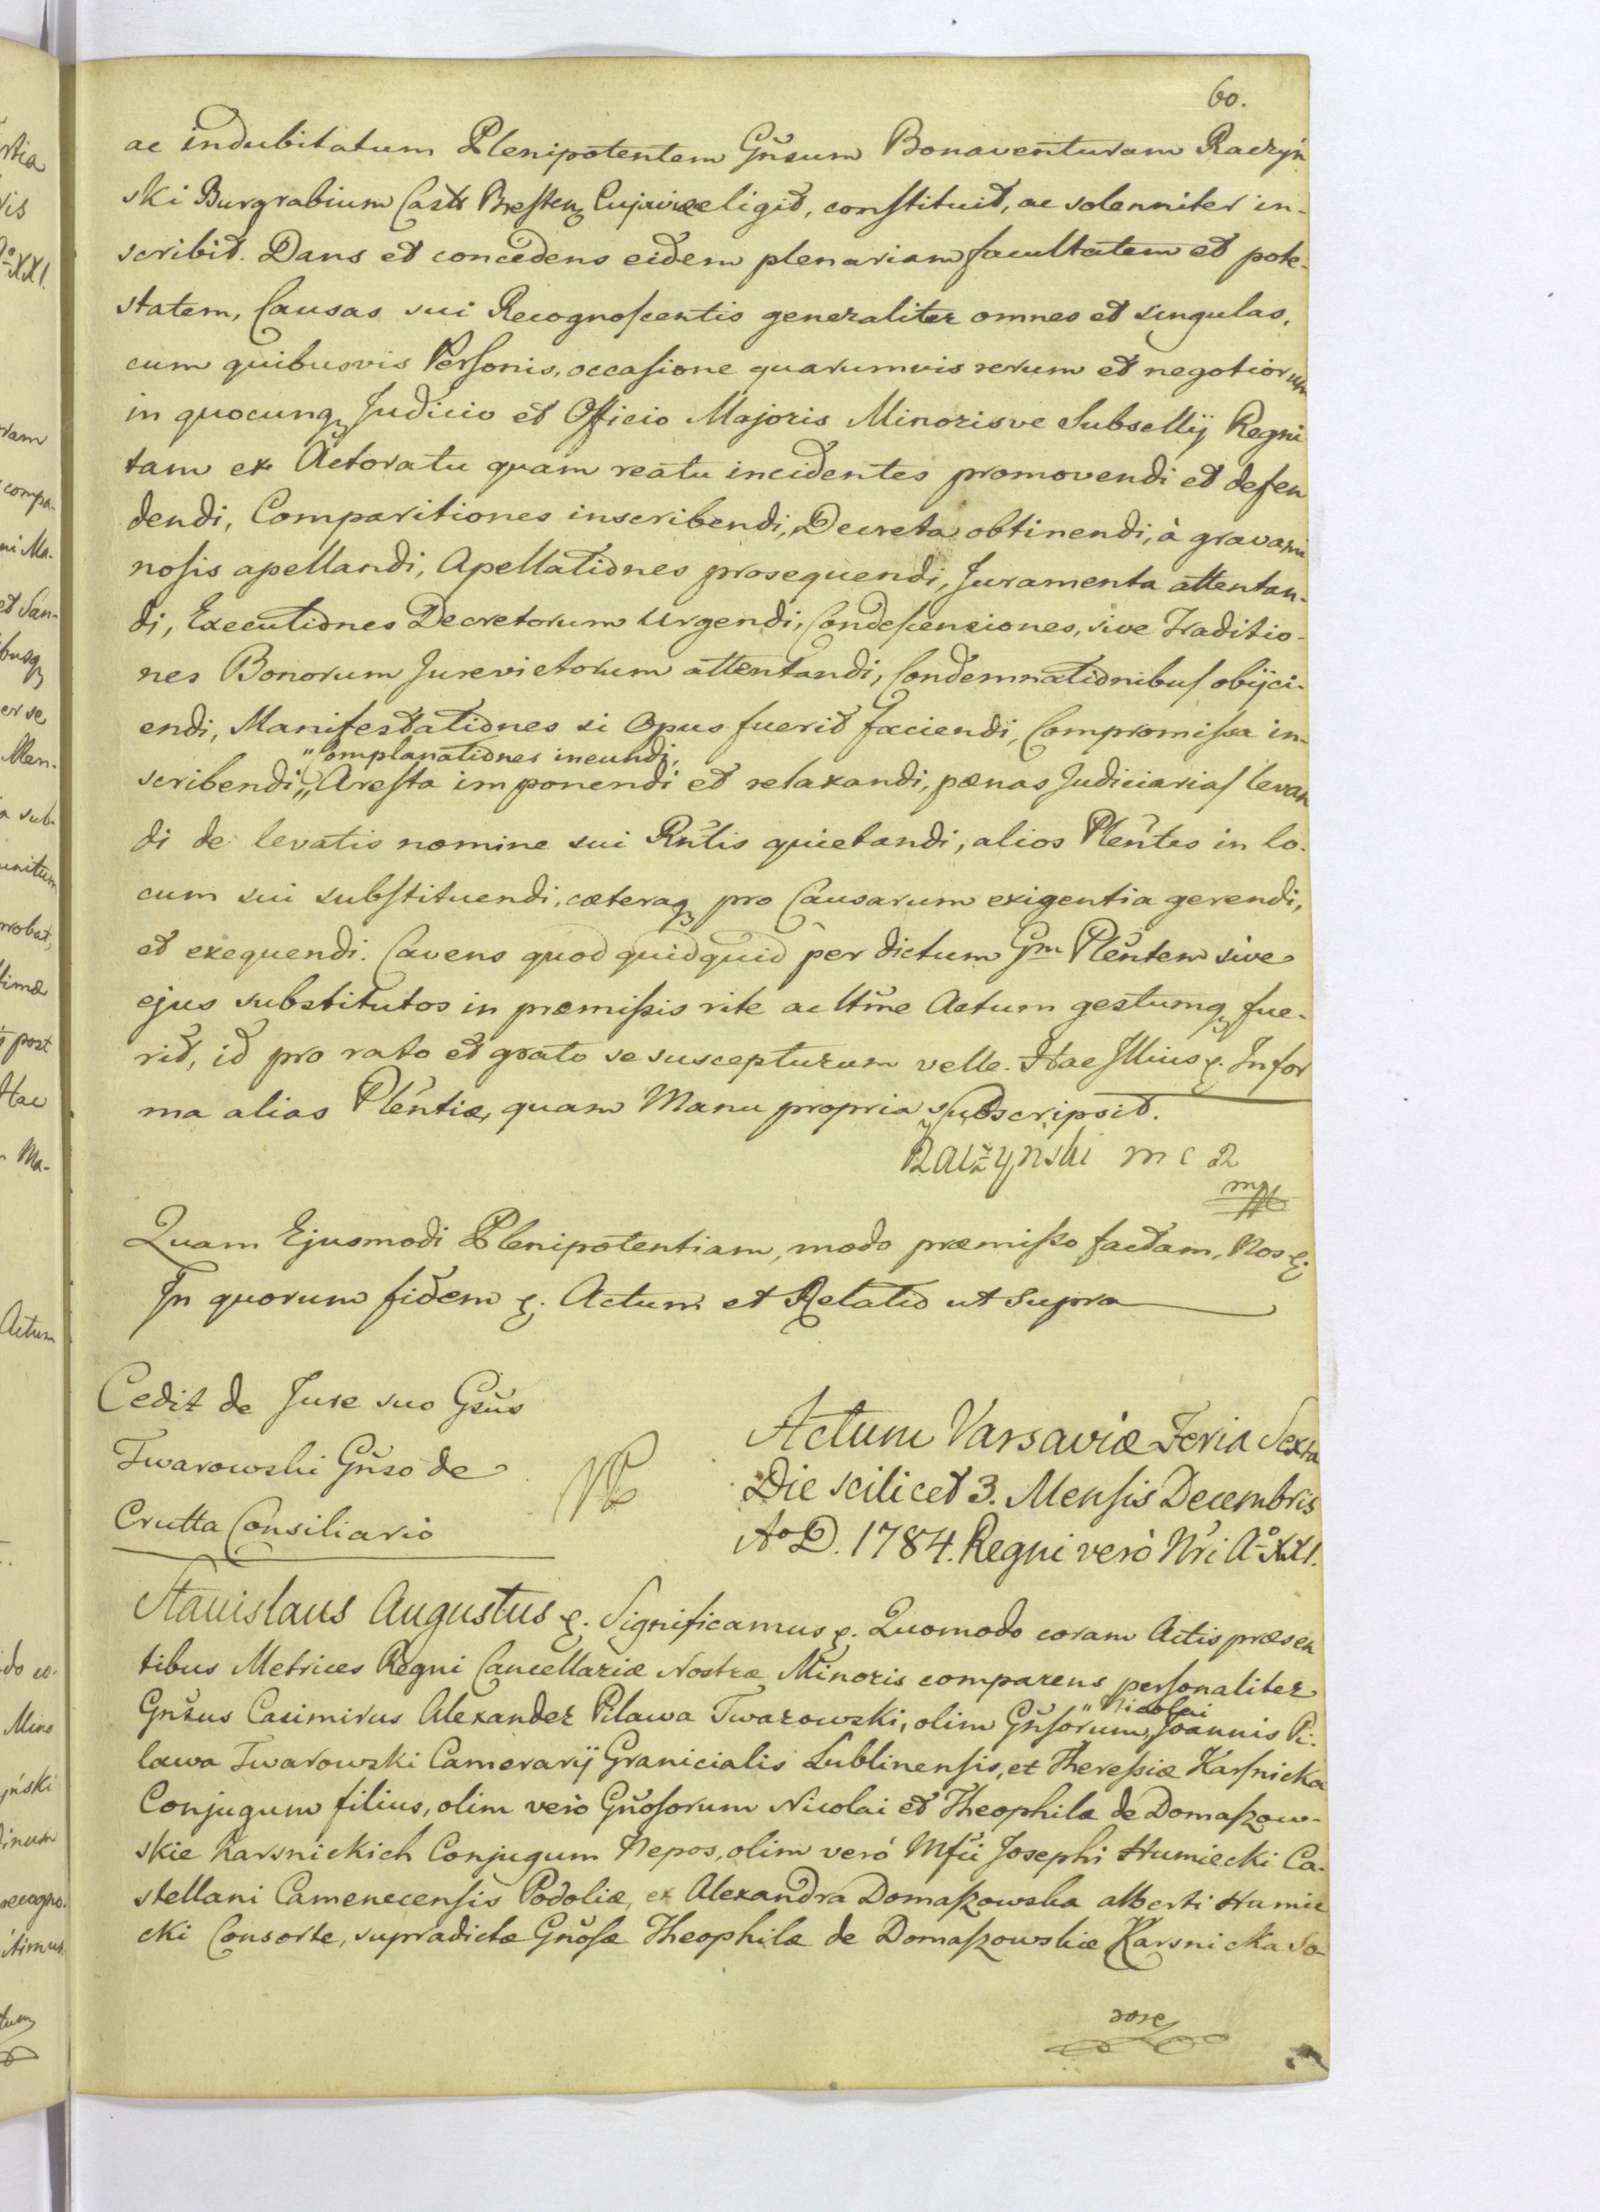 60.
ac indubitatum Plenipotentem Gñsum Bonaventuram Raczyń
ski Burgrabium Castr Bresten Cujaviæ eligit, constituit, ac solenniter in-
scribit. Dans et concedens eidem plenariam facultatem et pote-
statem, Causas sui Recognoscentis generaliter omnes et singulas,
cum quibusvis Personis, occasione quarumvis rerum et negotiorum
in quocunq Judicio et Officio Majoris Minorisve Subsellij Regni
tam ex Actoratu quam reatu incidentes promovendi et defen
dendi, Comparitiones inscribendi, Decreta obtinendi, à gravami
nosis apellandi, Apellationes prosequendi, Juramenta attentan-
di, Executiones Decretorum Urgendi, Condescensiones, sive Traditio-
nes Bonorum Jurevictorum attentandi, Condemnationibus obijci-
endi, Manifestationes si Opus fuerit faciendi, Compromissa in-
"Complanationes ineundi,
scribendi,, Aresta imponendi et relaxandi, pænas Judiciarias levan
di de levatis nomine sui Rñtis quietandi, alios Pleñtes in lo-
cum sui substituendi, cæteraq pro Causarum exigentia gerendi,
et exequendi. Cavens quod quidquid per dictum Gm Pleñtem sive
ejus substitutos in præmissis rite ac lttme Actum gestumq fue-
rit, id pro rato et grato se suscepturum velle. Hac Illius &. In for
ma alias Pleñtiæ, quam Manu propria subscripsit.
Raczyński m c R
mpp
Quam Ejusmodi Plenipotentiam, modo præmisso factam, Nos &.
In quorum fidem &. Actum et Relatio ut Supra
Cedit de Jure suo Gñsus
Twarowski Gñso de
Crutta Consiliario
Actum Varsaviæ Feria Sexta
Die scilicet 3. Mensis Decembris
Ao D. 1784. Regni verò Nri Ao XXI.
Stanislaus Augustus &. Significamus &. Quomodo coram Actis præsen
tibus Metrices Regni Cancellariæ Nostræ Minoris comparens personaliter
"Nicolai
Gñsus Casimirus Alexander Pilawa Twarowski, olim Gñsorum, Joannis Pi-
lawa Twarowski Camerarij Granicialis Lublinensis, et Theressiæ Karsnicka
Conjugum filius, olim verò Gñosorum Nicolai et Theophila de Domaszow-
skie Karsnickich Conjugum Nepos, olim verò Mfci Josephi Humiecki Ca-
stellani Camenecensis Podoliæ, ex Alexandra Domaszowska Alberti Humie
cki Consorte, supradictæ Gñosæ Theophilæ de Domaszowskie Karsnicka So-
rore